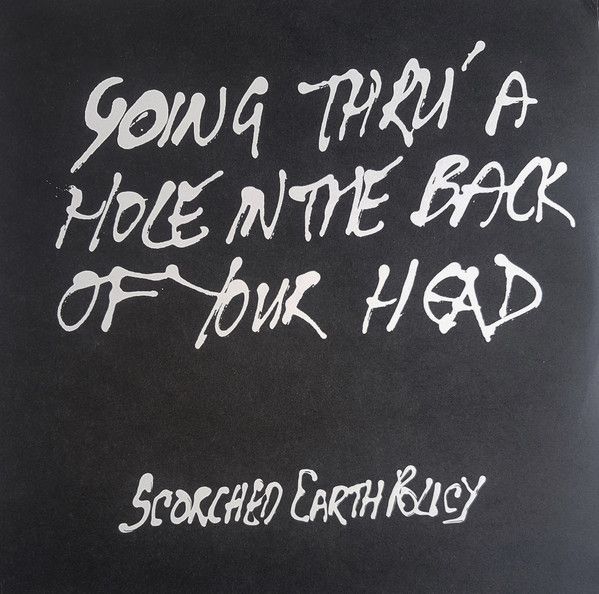 GOING THRU' A
HOLE IN THE BACK
OF YOUR HEAD
SCORCHED EARTH POLICY